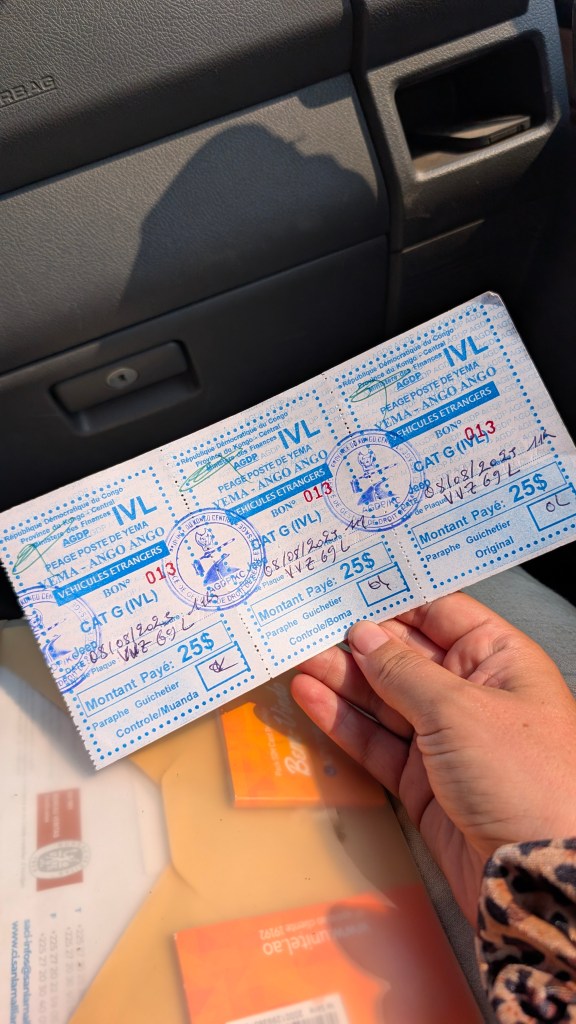 AIRBAG
République Démocratique du Congo
Province du Kongo - Central
Ministère des Finances
AGDP
IVL
PEAGE POSTE DE YEMA
YEMA - ANGO ANGO
VEHICULES ETRANGERS
BON° 013
CAT G (IVL)
Jeep
08/08/2025 11h
de Plaque VVZ 69 L
Montant Payé: 25$
Paraphe Guichetier
Controle/Muanda
République Démocratique du Congo
Province du Kongo - Central
Ministère des Finances
AGDP
IVL
PEAGE POSTE DE YEMA
YEMA - ANGO ANGO
VEHICULES ETRANGERS
BON° 013
CAT G (IVL)
08/08/2025 11h
VVZ 69 L
Montant Payé: 25$
Paraphe Guichetier
Controle/Boma
République Démocratique du Congo
Province du Kongo - Central
Ministère des Finances
AGDP
IVL
PEAGE POSTE DE YEMA
YEMA - ANGO ANGO
VEHICULES ETRANGERS
BON° 013
CAT G (IVL)
08/08/2025 11h
de Plaque VVZ 69 L
Montant Payé: 25$
Paraphe Guichetier
Original
www.unitel.ao